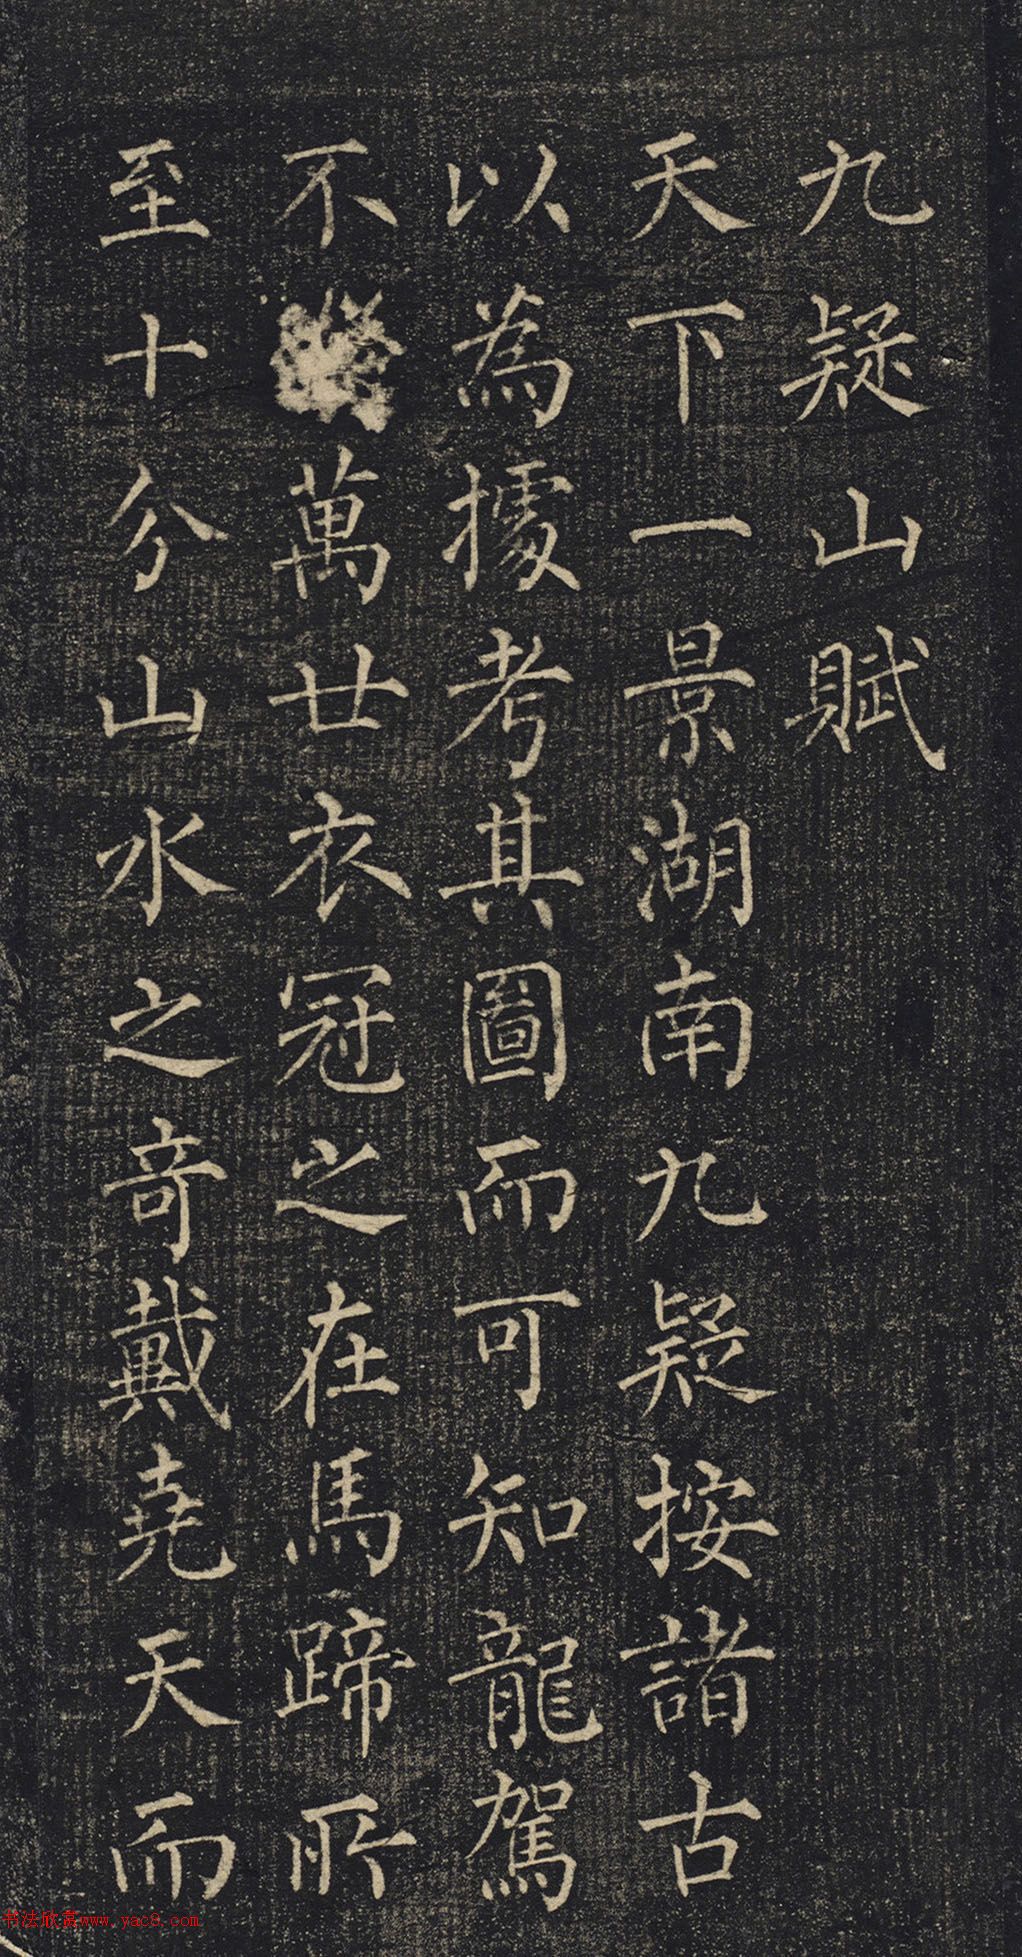 九疑山賦
天下一景湖南九疑按諸古
以為據考其圖而可知龍駕
不萬廿衣冠之在馬蹄所
至十分山水之奇戴堯天而
书法欣赏www.yac8.com